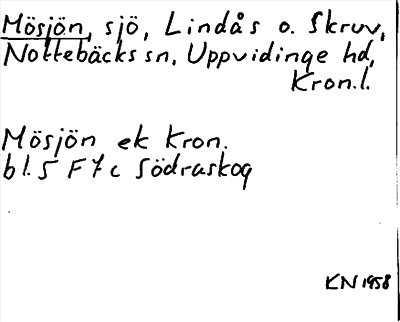 Mösjön, sjö, Lindås o. Skruv,
Nottebäcks sn, Uppvidinge hd,
Kron.l.
Mösjön ek Kron.
bl. 5 F 7 c Södraskog
KN 1958